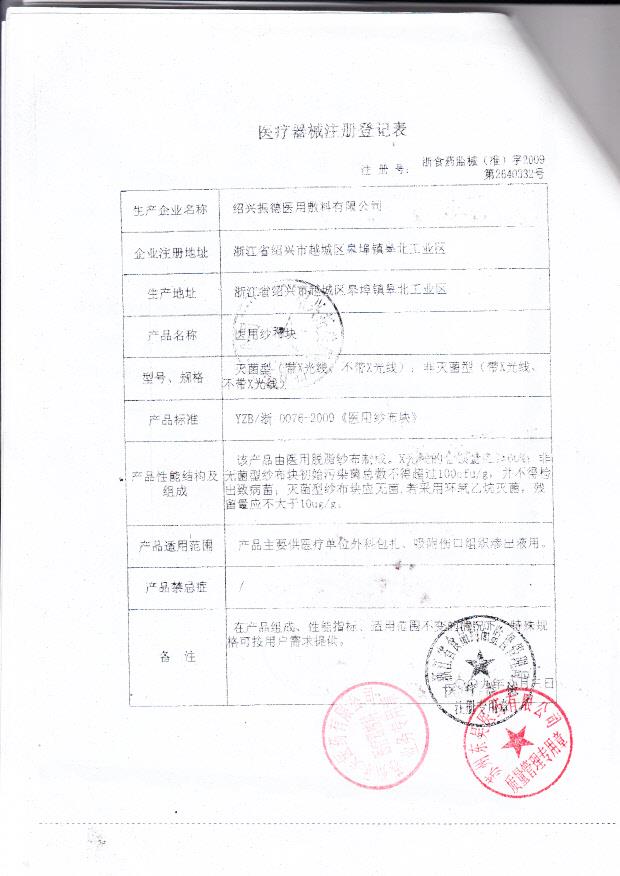 医疗器械注册登记表
注 册 号： 浙食药监械（准）字2009
第2640332号
生产企业名称 绍兴振德医用敷料有限公司
企业注册地址 浙江省绍兴市越城区皋埠镇皋北工业区
生产地址 浙江省绍兴市越城区皋埠镇皋北工业区
产品名称 医用纱布块
型号、规格 灭菌型（带X光线、不带X光线）；非灭菌型（带X光线、
不带X光线）
产品标准 YZB/浙 0076-2009《医用纱布块》
产品性能结构及
组成
该产品由医用脱脂纱布制成。
菌型纱布块初始污染菌总数不得超过100cfu/g，并不得检
出致病菌；灭菌型纱布块应灭菌,若采用环氧乙烷灭菌，残
留量应不大于10ug/g。
产品适用范围 产品主要供医疗单位外科包扎、吸附伤口组织渗出液用。
产品禁忌症 /
备 注
在产品组成、性能指标、适用范围不变的情况下，特殊规
格可按用户需求提供。
注册专用章
苏州东吴医药有限公司
质量管理专用章